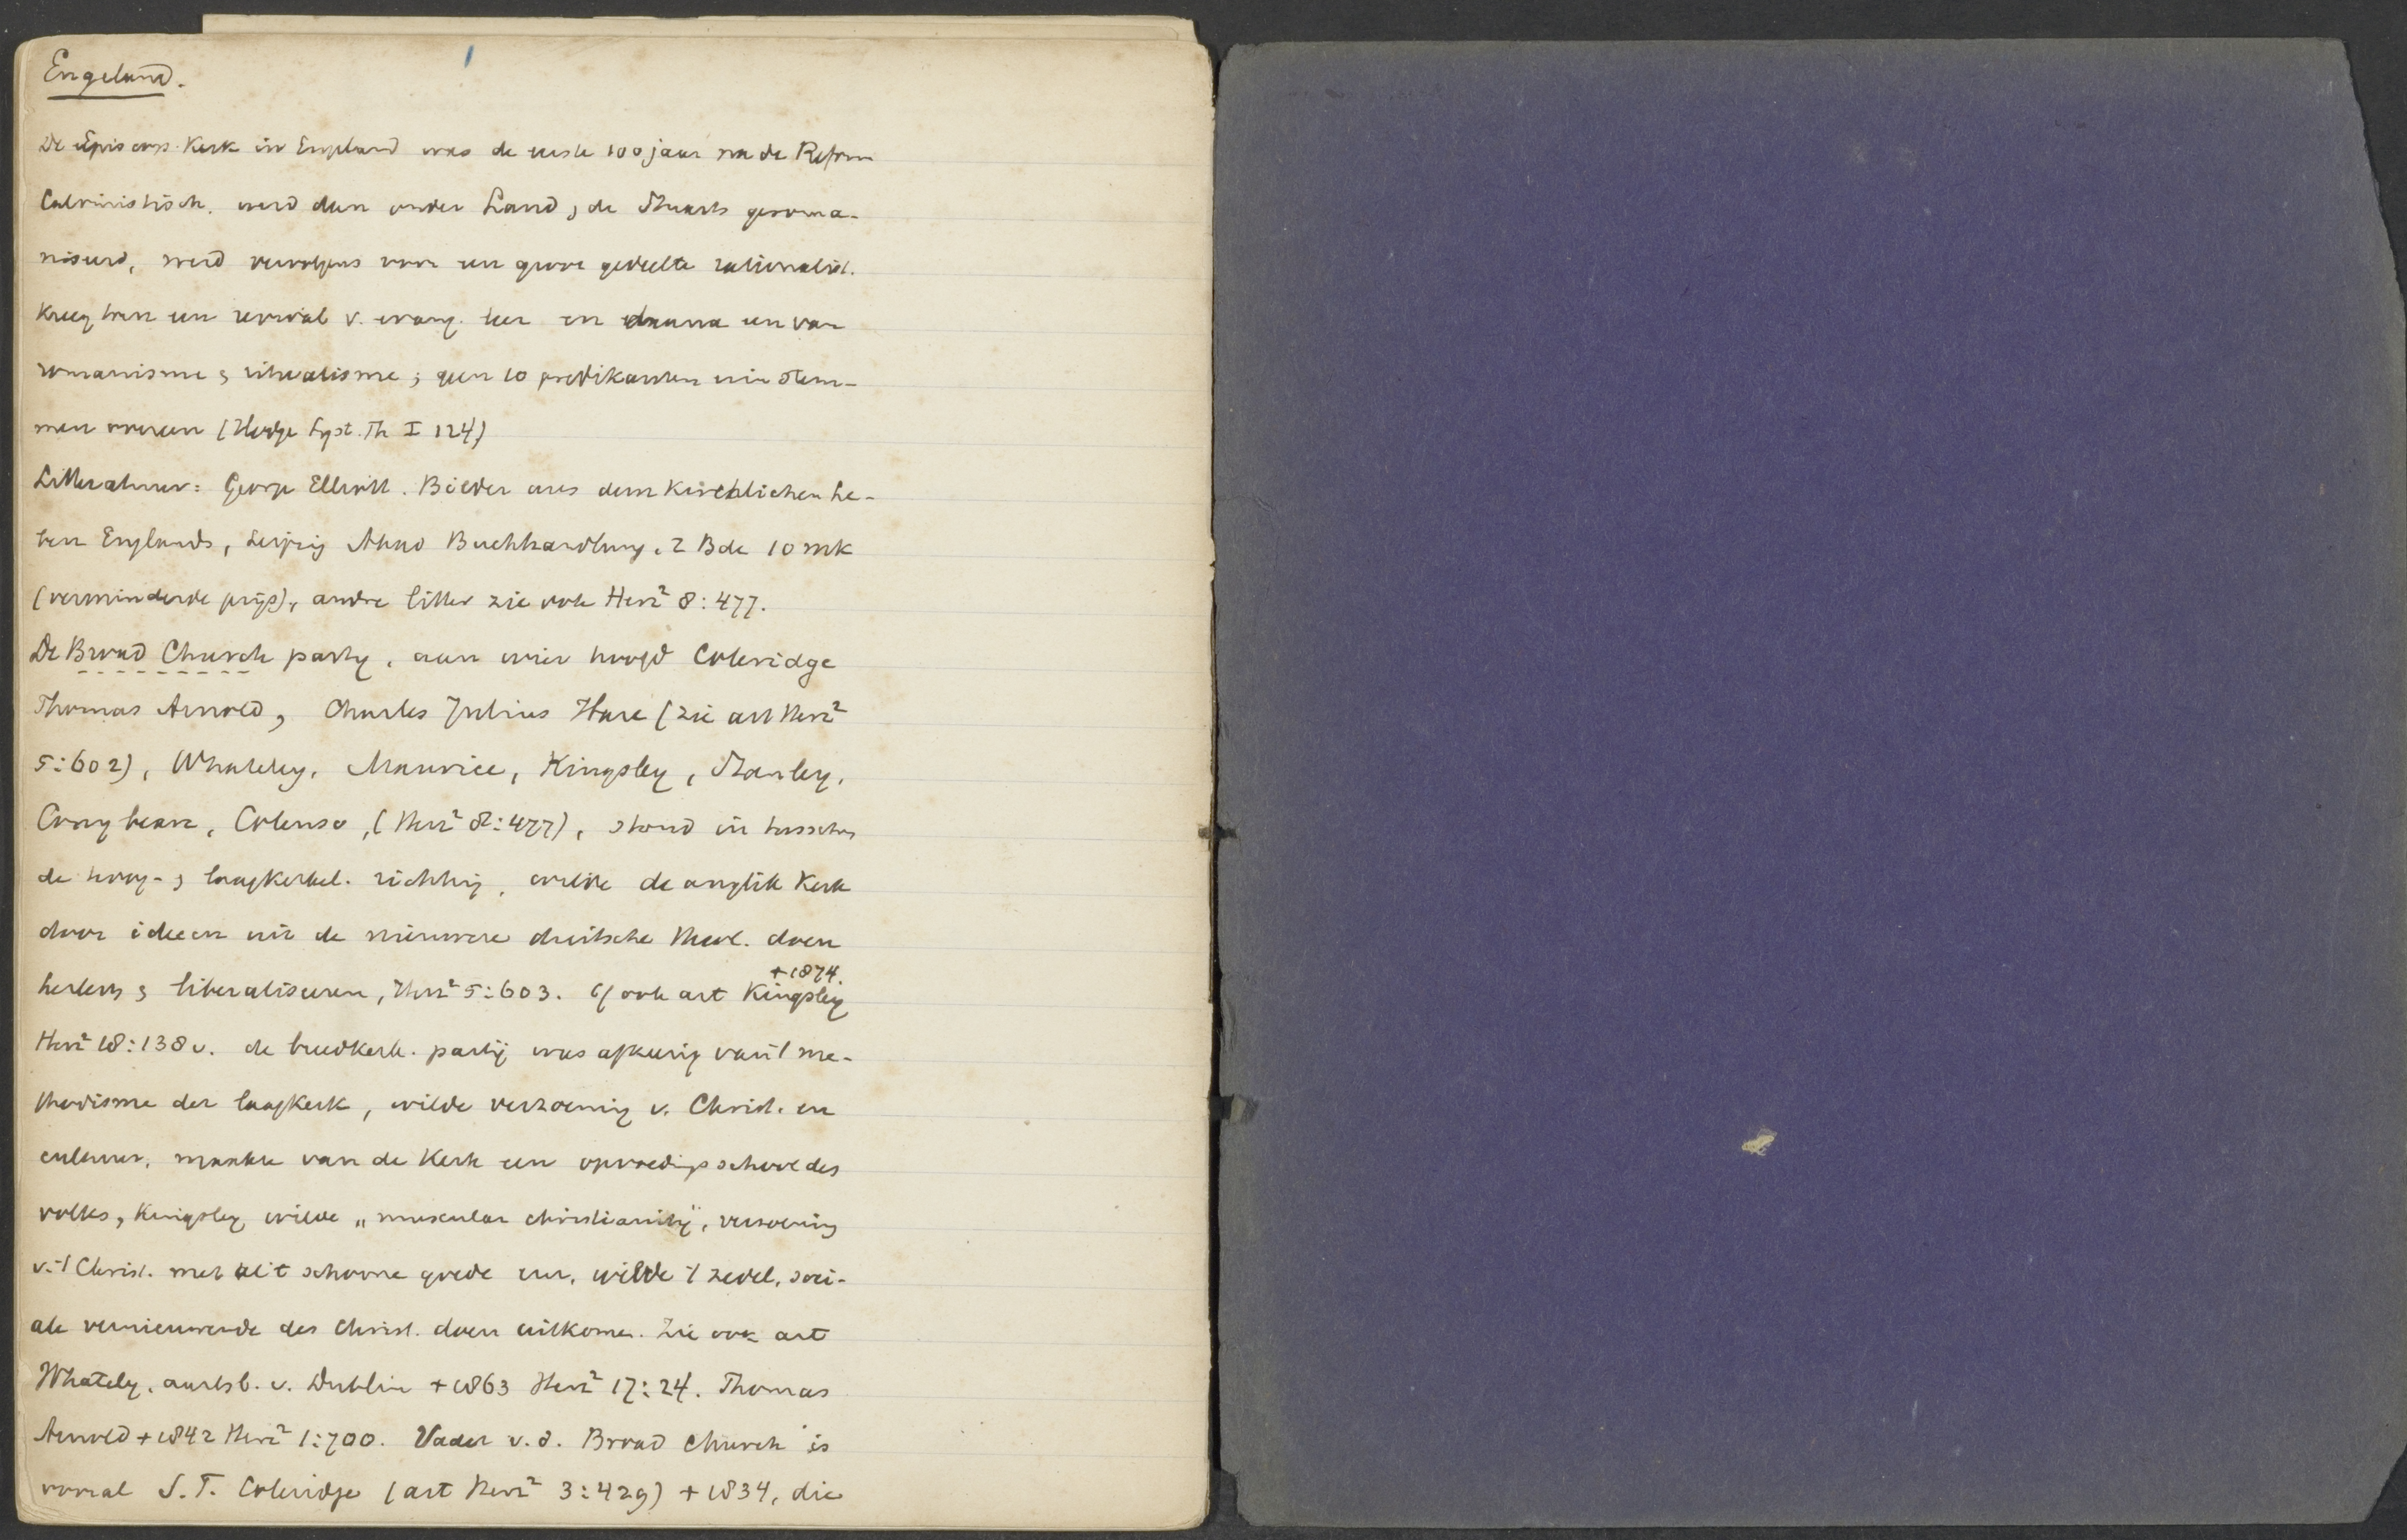 Engeland.
De Episcop. Kerk in England was de eerste 100 jaar na de Reform
Calvinistisch. werd dan onder Laud, de Stuarts geroma-
niseerd, werd vervolgens voor een groot gedeelte rationalist.
Kreeg toen een revival v. evang. leer en daarna een van
romanisme & ritualisme; geen 10 predikanten
men overeen (Hodge Syst. Th I 124)
Litteratuur: George Elliott. Bilder aus dem Kirchlichen Le-
ben Englands, Leipzig Buchhandlung. 2 Bde 10 mk
(verminderde prijs), andre litter zie ook Herz² 8:477.
De Broad Church party, aan wier hoofd Coleridge
Thomas Arnold, Charles Julius Hare (zie art Herz²
5:602), Whateley, Maurice, Kingsley, Stanley,
Conybeare, Colenso, (Herz² 8:477), stond in tusschen
de hoog- & laagkerkel. richting, wilde de anglik Kerk
door ideeen uit de nieuwere duitsche theol. doen
herleven & liberaliseeren, Herz² 5:603. Cf ook art Kingsley
+1874.
Herz² 18:138v. de breedkerk. partij was afkeerig van 't me-
thodisme der laagkerk, wilde verzoening v. Christ. en
cultuur, maakte van de Kerk een opvoedingsschool des
volks, Kingsley wilde „muscular christianity", verzoening
v. 't Christ. met al 't schoone goede enz. wilde 't zedel. soci-
ale vernieuwende des Christ. doen uitkomen. Zie ook art
Whately, aartsb. v. Dublin +1863 Herz² 17:24. Thomas
Arnold +1842 Herz² 1:700. Vader v. d. Broad church is
vooral S. T. Coleridge (art Herz² 3:429) +1834, die